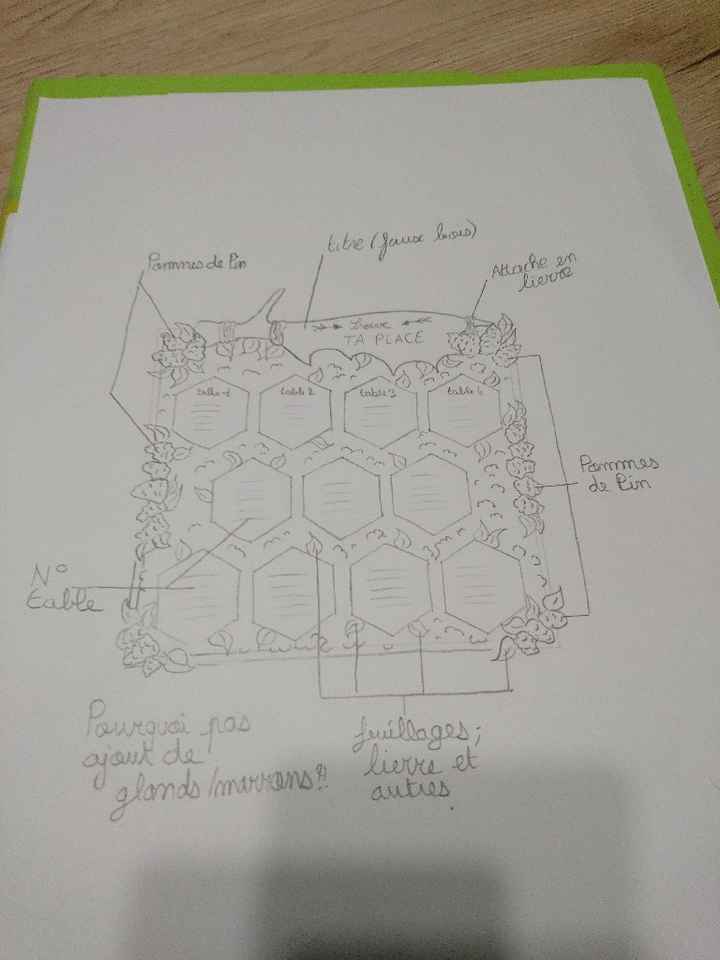 titre (faux bois)
Pommes de Pin
Attache en
lierre
Trouve
TA PLACE
table 1
table 2
table 3
table 4
Pommes
de Pin
N°
table
Pourquoi pas
ajout de
glands/marrons?!
feuillages;
lierre et
autres.